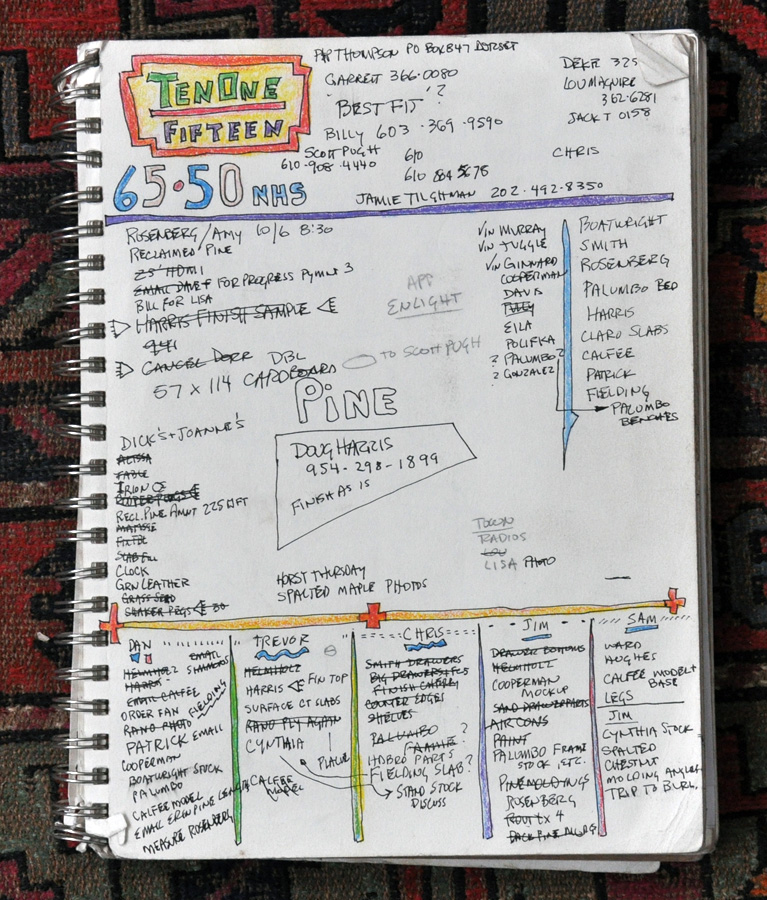 TENONE
FIFTEEN
65·50 NHS
PO BOX 847 DORSET
GARRETT 366·0080
BEST FIT ?
BILLY 603·369·9590
SCOTT PUGH
610·908·4440
610
JAMIE TILGHMAN 202·492·8350
325
LOU MAGUIRE
362·6281
JACK T 0158
CHRIS
ROSENBERG/AMY 10/6 8:30
RECLAIMED PINE
25' HDMI
EMAIL DAVE F FOR PROGRESS PYMNT 3
BILL FOR LISA
HARRIS FINISH SAMPLE
CANCEL DORR DBL
57 X 114 CARDBOARD
APP
ENLIGHT
TO SCOTT PUGH
PINE
DOUG HARRIS
954-298-1899
FINISH AS IS
VIN MURRAY
VIN TUGGLE
VIN GINNARD
COOPERMAN
DAVIS
EILA
POLIFKA
? PALUMBO?
? GONZALEZ
BOATWRIGHT
SMITH
ROSENBERG
PALUMBO BED
HARRIS
CLARO SLABS
CALFEE
PATRICK
FIELDING
PALUMBO
BENCHES
DICK'S + JOANNE'S
ALISSA
FABLE
RECL. PINE AMNT 225 LFT
MATISSE
SLAB FILL
CLOCK
GRN LEATHER
GRASS SEED
SHAKER PEGS 30
TOWN
RADIOS
LOU
LISA PHOTO
HORST THURSDAY
SPALTED MAPLE PHOTOS
DAN
EMAIL
HELMHOLZ SIMMONS
HARRIS
EMAIL CALFEE
ORDER FAN FIELDING
RANO PHOTO
PATRICK EMAIL
COOPERMAN
BOATWRIGHT STOCK
PALUMBO
CALFEE MODEL
EMAIL ERGU PINE LENGTHS
MEASURE ROSENBERG
TREVOR
HELMHOLZ
HARRIS FIN TOP
SURFACE CT SLABS
RANO PLY AGAIN
CYNTHIA
PLACE
CALFEE
MODEL
CHRIS
SMITH DRAWERS
BIG DRAWERS
FINISH CHERRY
COUNTER EDGES
SHELVES
PALUMBO
FRAME ?
HDBRD PARTS
FIELDING SLAB?
STAND STOCK
DISCUSS
JIM
DRAWER BOTTOMS
HELMHOLZ
COOPERMAN
MOCKUP
SAND DRAWER PARTS
AIR CONS
PAINT
PALUMBO FRAME
STOCK, ETC.
PINE MOLDINGS
ROSENBERG
SAM
WARD
HUGHES
CALFEE MODEL +
BASE
LEGS
JIM
CYNTHIA STOCK
SPALTED
CHESTNUT
MOLDING ANGLES
TRIP TO BURL.